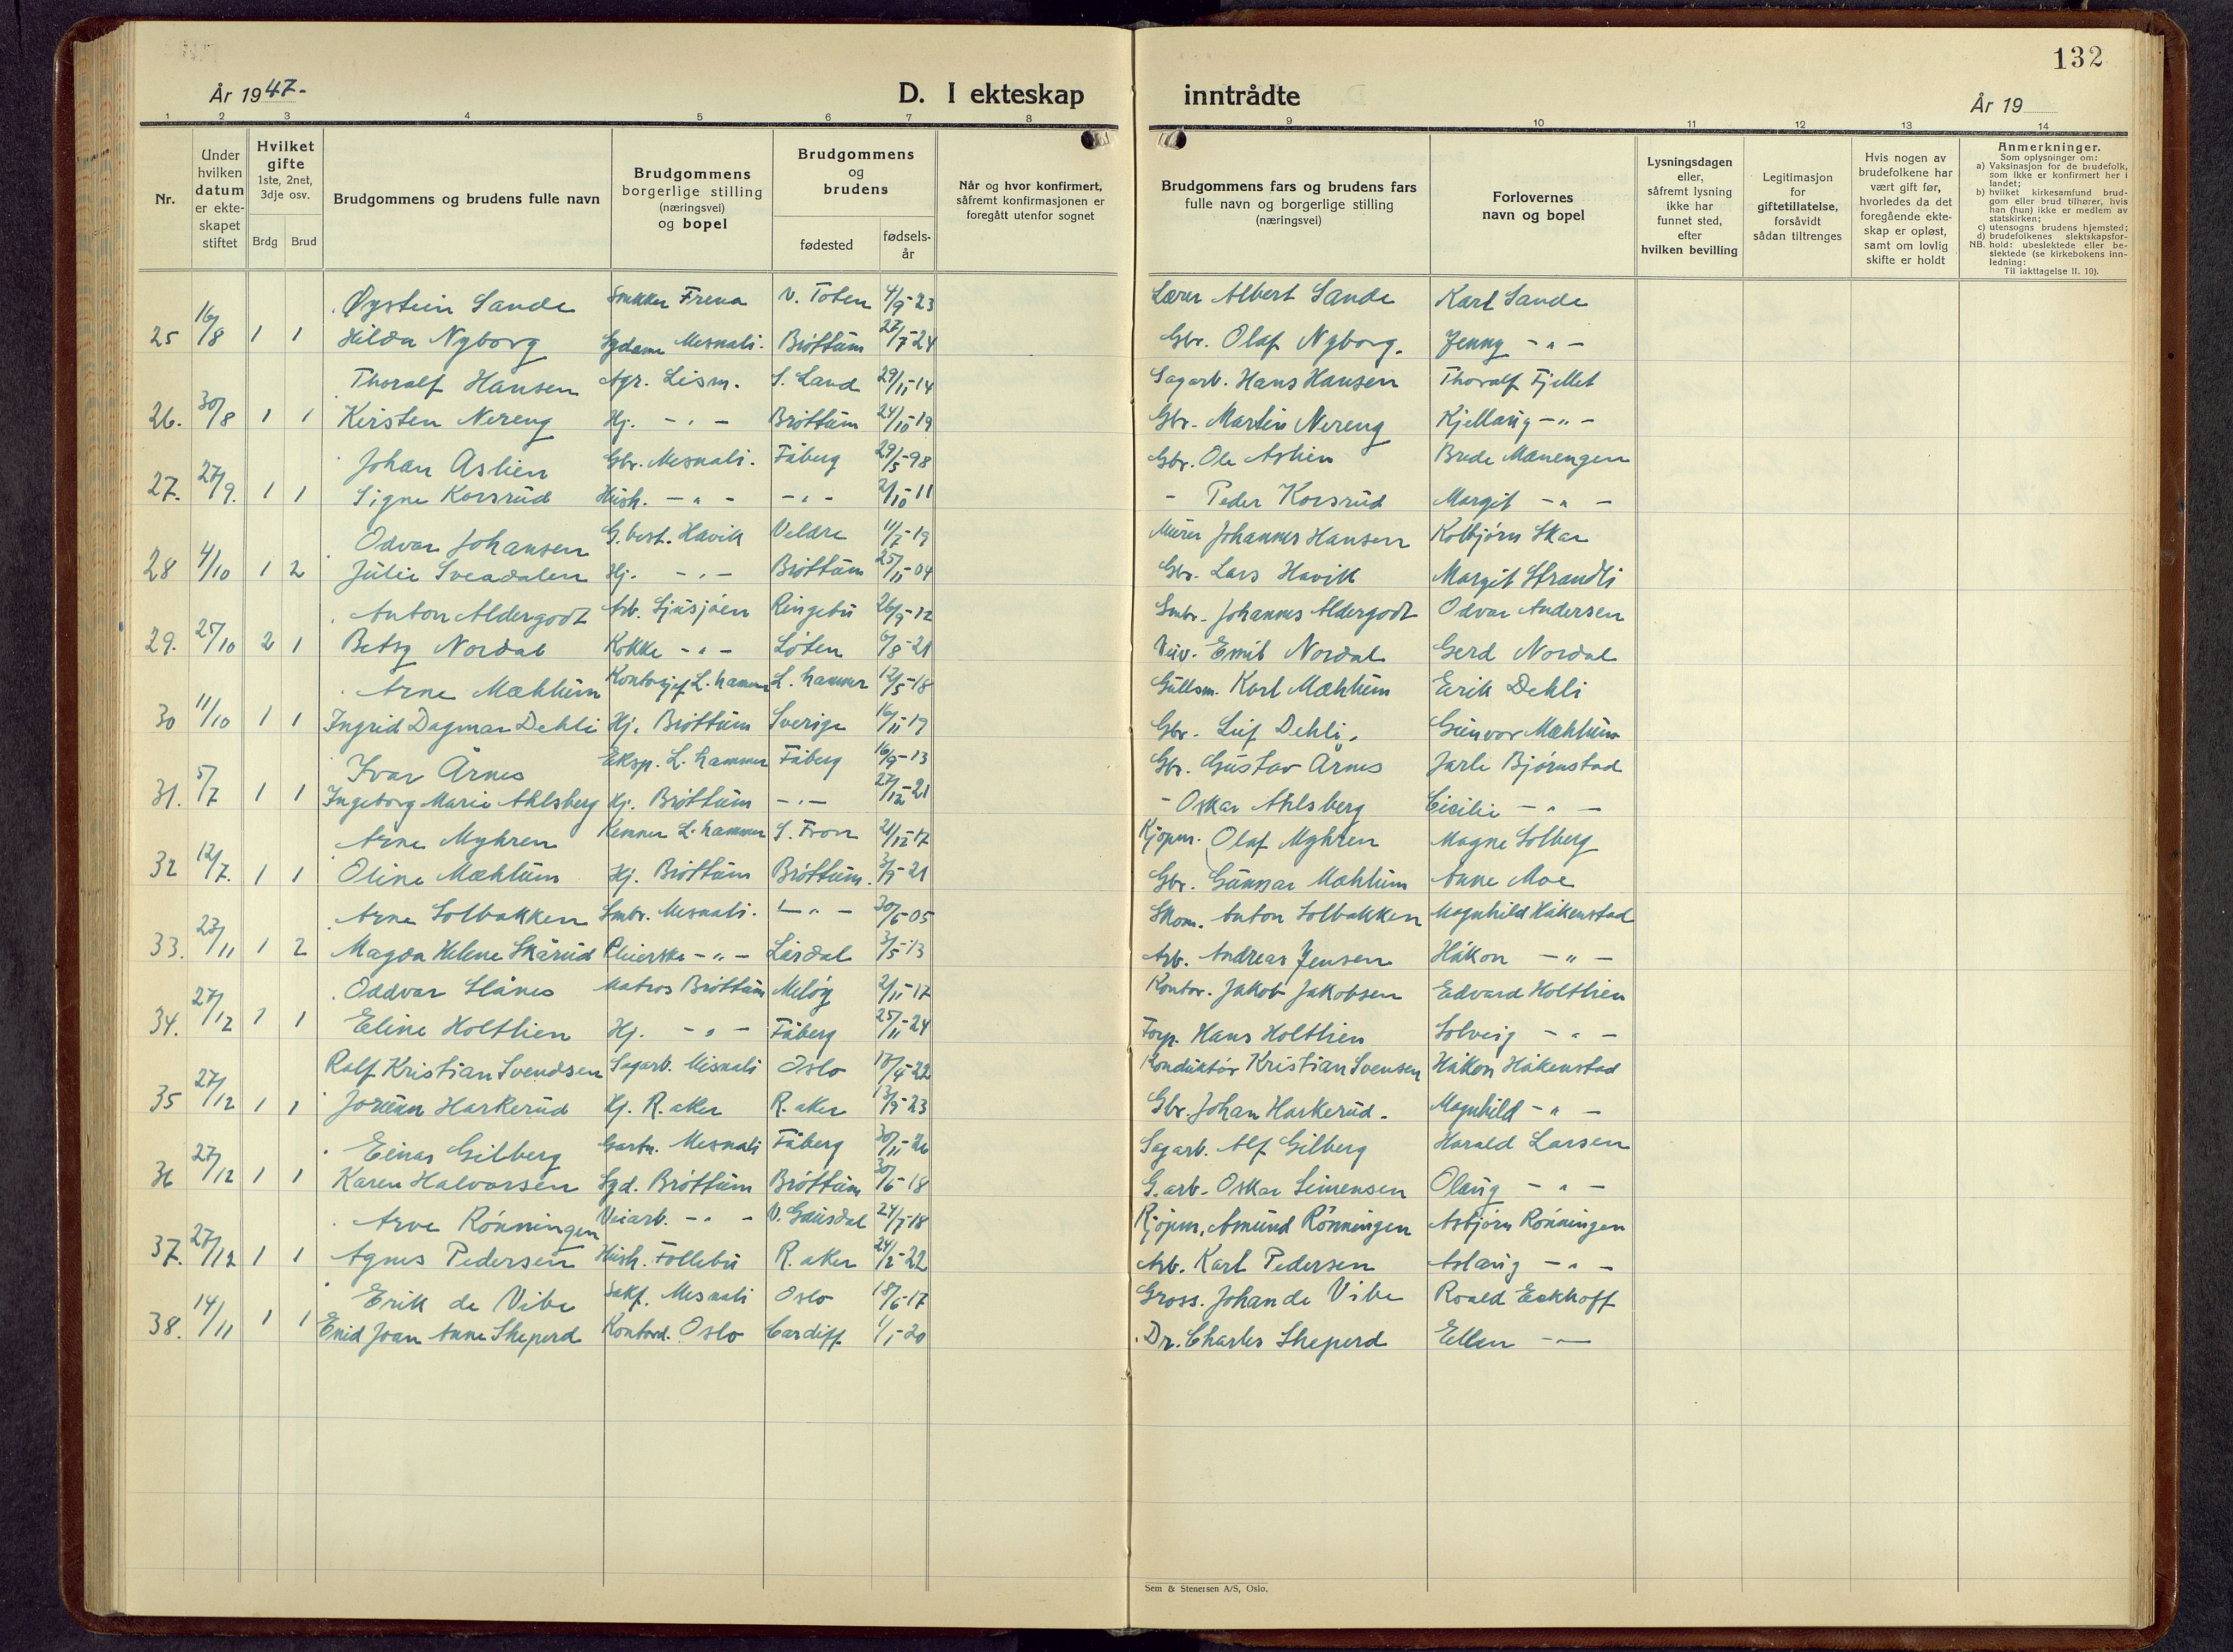 132
År 1947.-
D. I ekteskap inntrådte
År 19
1 2 3 4 5 6 7 8 9 10 11 12 13 14
Nr.
Under hvilken datum er ekteskapet stiftet
Hvilket gifte 1ste, 2net, 3dje osv.
Brdg Brud
Brudgommens og brudens fulle navn
Brudgommens borgerlige stilling (næringsvei) og bopel
Brudgommens og brudens
fødested
fødselsår
Når og hvor konfirmert, såfremt konfirmasjonen er foregått utenfor sognet
Brudgommens fars og brudens fars fulle navn og borgerlige stilling (næringsvei)
Forlovernes navn og bopel
Lysningsdagen eller, såfremt lysning ikke har funnet sted, efter hvilken bevilling
Legitimasjon for giftetillatelse, forsåvidt sådan tiltrenges
Hvis nogen av brudefolkene har vært gift før, hvorledes da det foregående ekteskap er opløst, samt om lovlig skifte er holdt
Anmerkninger.
Som oplysninger om:
a) Vaksinasjon for de brudefolk, som ikke er konfirmert her i landet;
b) hvilket kirkesamfund brudgom eller brud tilhører, hvis han (hun) ikke er medlem av statskirken;
c) utensogns brudens hjemsted;
d) brudefolkenes slektskapsforhold: ubeslektede eller beslektede (se kirkebokens innledning:
NB. Til iakttagelse II. 10).
Øystein Sande Snekker Frena V. Toten 4/9-23 Lærer Albert Sande Karl Sande
25 16/8 1 1 Hilda Nyborg Sydame Mesnali. Brøttum 27/7-24 Gbr. Olaf Nyborg. Jenny -"-
Thoralf Hansen Agr. Lism. S. Land 29/11-14 Sagarb. Hans Hansen Thoralf Fjellet
26. 30/8 1 1 Kirsten Nereng Hj. -"- Brøttum 24/10-19 Gbr. Martin Nereng Kjellaug -"-
Johan Aslien Gbr. Mesnali. Fåberg 29/5-98 Gbr. Ole Aslien Brede Mænengen
27. 27/9. 1 1 Signe Korsrud Hush. -"- -"- 2/10-11 - Peder Korsrud Margit -"-
Odvar Johansen G.best. Havik Veldre 11/2-19 Murer Johannes Hansen Kolbjørn Skar
28 4/10 1 2 Julie Sveadalen Hj. -"- Brøttum 25/11-04 Gbr. Lars Havik Margit Strandli
Anton Aldergodt Arb. Sjusjøen Ringebu 26/9-12 Smbr. Johannes Aldergodt Odvar Andersen
29. 25/10 2 1 Betsy Nordal Kokke -"- Løten 6/8-21 Emil Nordal Gerd Nordal
Arne Mæhlum Kontorsjef L. hammer L. hammer 12/5-18 Gullsm. Karl Mæhlum Eirik Dehli
30 11/10 1 1 Ingrid Dagmar Dehli Hj. Brøttum Sverige 16/11-19 Gbr. Leif Dehli. Gunvor Mæhlum
Ivar Årnes Eksp. L. hammer Fåberg 16/9-13 Gbr. Gustav Årnes Jarle Bjørnstad
31. 5/7 1 1 Ingeborg Marie Ahlsberg Hj. Brøttum -"- 27/12-21 - Oskar Ahlsberg Cicilie -"-
Arne Myhren Kemner L. hammer S. Fron 21/12-17 Kjøpm. Olaf Myhren Magne Solberg
32 12/7. 1 1 Oline Mæhlum Hj. Brøttum Brøttum. 3/9-21 Gbr. Gunnar Mæhlum Anne Moe
Arne Solbakken Smbr. Mesnali. -"- 30/6-05 Skom. Anton Solbakken Magnhild Håkenstad
33. 23/11 1 2 Magda Helene Skårud Pleierske -"- Lårdal 3/5-13 Arb. Andreas Jensen Håkon -"-
Oddvar Slånes Matros Brøttum Meløy 2/11-17 Kontor. Jakob Jakobsen Edvard Holtlien
34. 27/12 1 1 Eline Holtlien Hj. -"- Fåberg 25/11-24 Forp. Hans Holtlien Solveig -"-
Rolf Kristian Svendsen Sagarb. Mesnali Oslo 10/4-22 Konduktør Kristian Svensen Håkon Håkenstad
35 27/12 1 1 Jorunn Harkerud Hj. R. aker R. aker 13/9-23 Gbr. Johan Harkerud. Magnhild -"-
Einar Gilberg Gartn. Mesnali Fåberg 30/11-26 Sagarb. Alf Gilberg Harald Larsen
36 27/12 1 1 Karen Halvorsen Syd. Brøttum Brøttum 30/6-18 G.arb. Oskar Simensen Olaug -"-
Arve Rønningen Veiarb. -"- V. Gausdal 24/7-18 Kjøpm. Amund Rønningen Asbjørn Rønningen
37. 27/12 1 1 Agnes Pedersen Hush. Follebu R. aker 24/2-22 Arb. Karl Pedersen Aslaug -"-
Erik de Vibe Sakf. Mesnali Oslo 18/6-17 Gross. Johan de Vibe Roald Eckhoff
38. 14/11 1 1 Enid Joan Anne Sheperd Kontord. Oslo Cardiff 1/1-20 Dr. Charles Sheperd Ellen -"-
Sem & Stenersen A/S, Oslo.